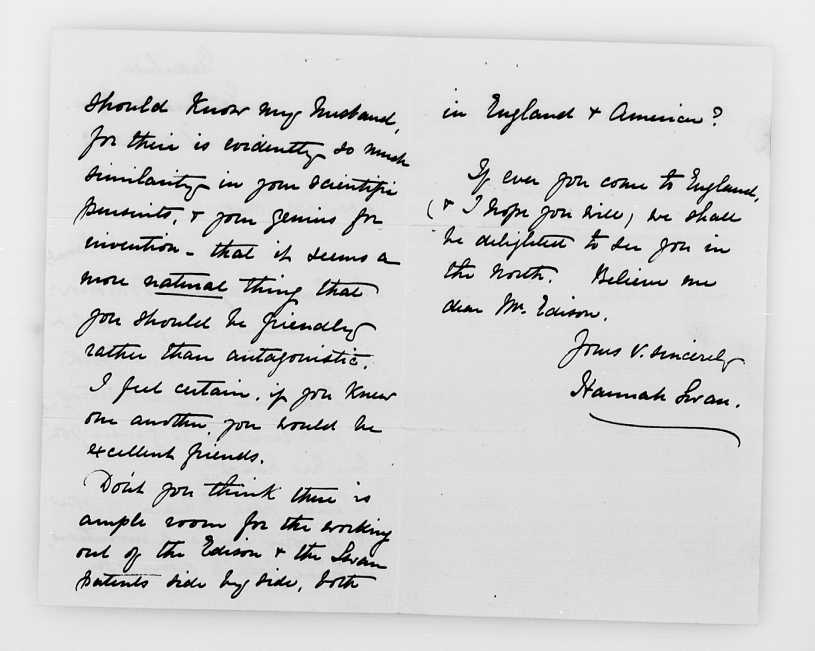 should know my husband,
for there is evidently so much
similarity in your scientific
pursuits, & your genius for
invention - that it seems a
more natural thing that
you should be friendly
rather than antagonistic.
I feel certain, if you knew
one another, you would be
excellent friends.
Don't you think there is
ample room for the working
out of the Edison & the Swan
patents side by side, both
in England & America?
If ever you come to England,
(& I hope you will) we shall
be delighted to see you in
the North. Believe me
dear Mr. Edison,
Yours v. sincerely
Hannah Swan.